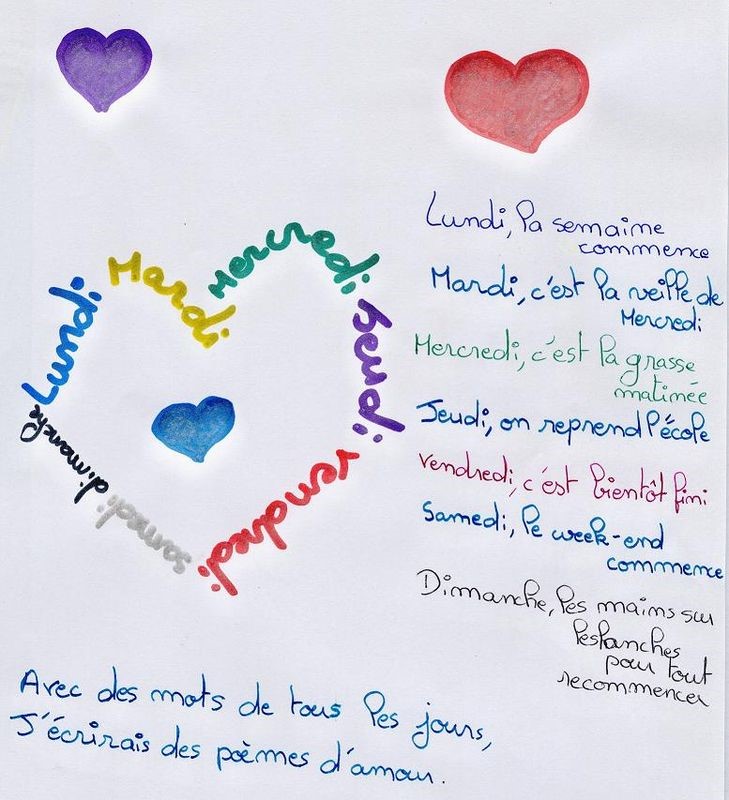 Lundi
Mardi
Mercredi
Jeudi
vendredi
samedi
dimanche
Lundi, la semaine
commence
Mardi, c'est la veille de
Mercredi
Mercredi, c'est la grasse
matinée
Jeudi, on reprend l'école
Vendredi, c'est bientôt fini
Samedi, le week-end
commence
Dimanche, les mains sur
les hanches
pour tout
recommencer
Avec des mots de tous les jours,
J'écrirais des poèmes d'amour.